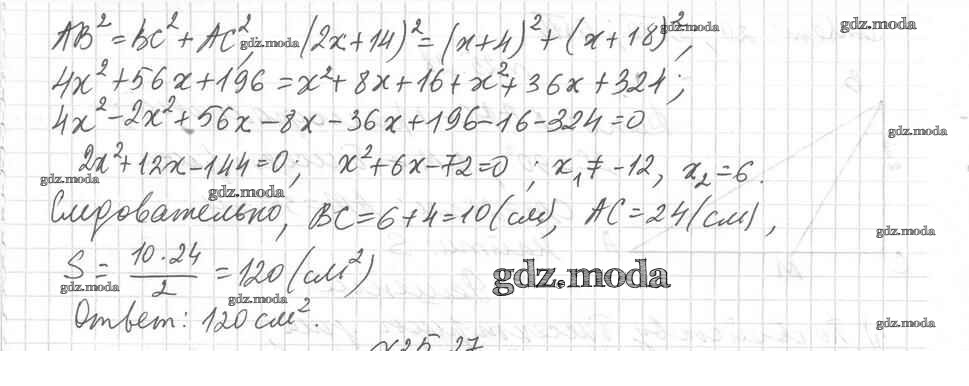 AB² = BC² + AC², (2x+14)² = (x+4)² + (x+18)²,
4x² + 56x + 196 = x² + 8x + 16 + x² + 36x + 324;
4x² - 2x² + 56x - 8x - 36x + 196 - 16 - 324 = 0
2x² + 12x - 144 = 0; x² + 6x - 72 = 0; x₁ ≠ -12, x₂ = 6.
Следовательно, BC = 6 + 4 = 10 (см), AC = 24 (см),
S = 10·24/2 = 120 (см²)
Ответ: 120 см².
gdz.moda
gdz.moda
gdz.moda
gdz.moda
gdz.moda
gdz.moda
gdz.moda
gdz.moda
gdz.moda
gdz.moda
gdz.moda